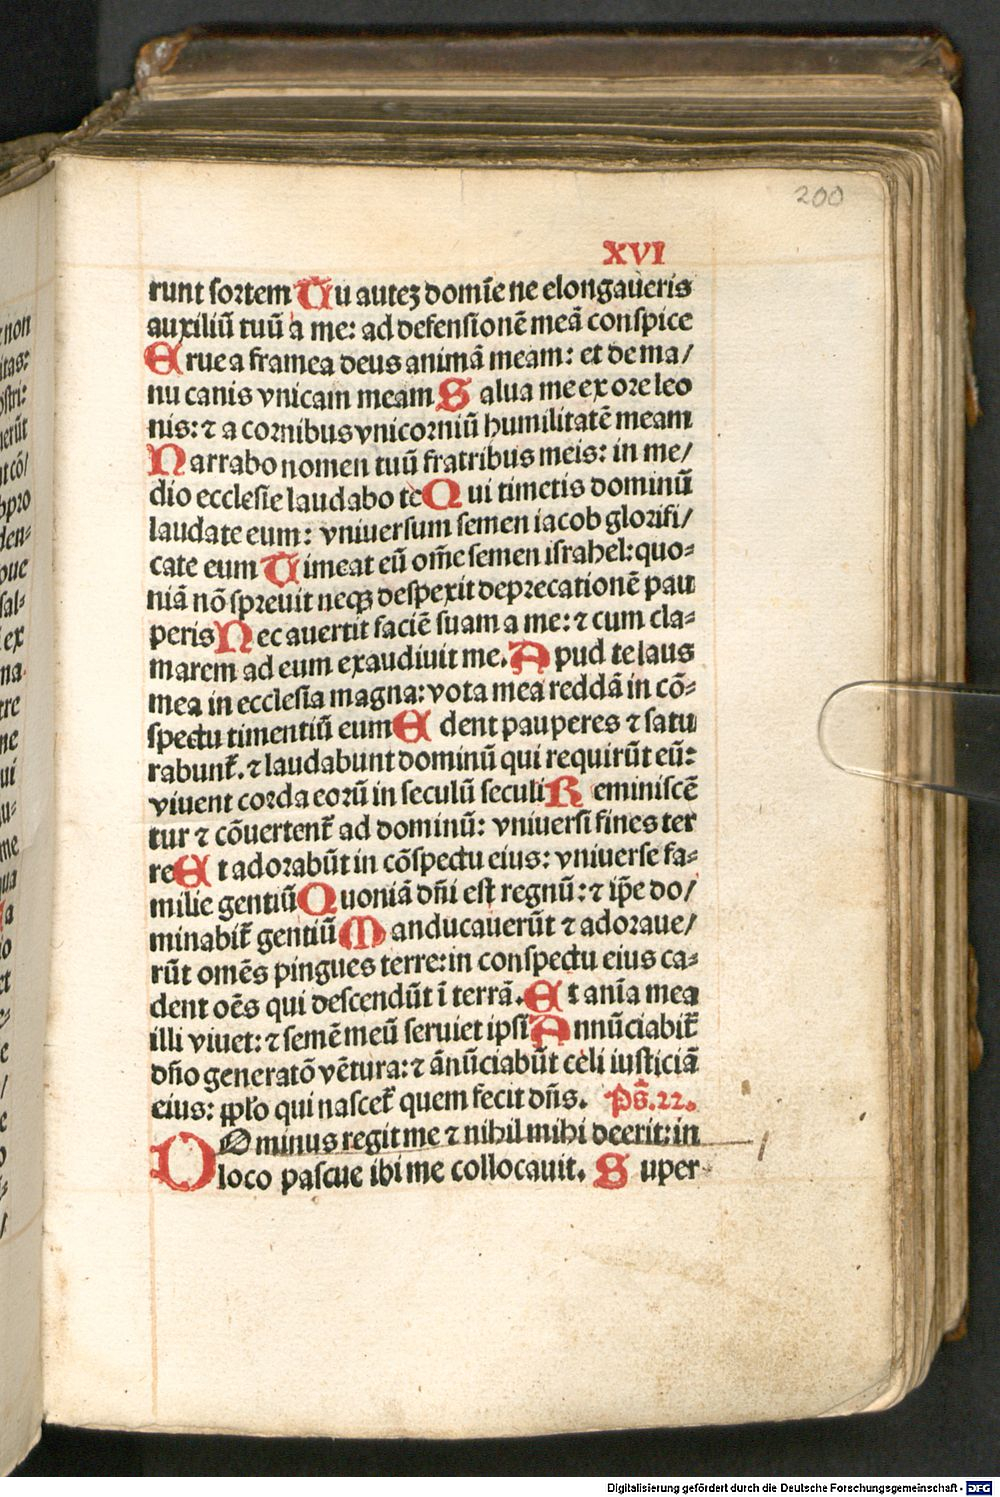 200
XVI
runt sortem Tu auteʒ domīe ne elongaueris
auxiliū tuū a me: ad defensionē meā conspice
Erue a framea deus animā meam: et de ma/
nu canis vnicam meam Salua me ex ore leo
nis: ⁊ a cornibus vnicorniū humilitatē meam
Narrabo nomen tuū fratribus meis: in me/
dio ecclesie laudabo te Qui timetis dominū
laudate eum: vniuersum semen iacob glorifi/
cate eum Timeat eū om̄e semen israhel: quo-
niā nō spreuit neqꝫ despexit deprecationē pau
peris Nec auertit faciē suam a me: ⁊ cum cla-
marem ad eum exaudiuit me. Apud te laus
mea in ecclesia magna: vota mea reddā in cō-
spectu timentiū eum Edent pauperes ⁊ satu
rabunt̄. ⁊ laudabunt dominū qui requirūt eū:
viuent corda eorū in seculū seculi Reminiscē
tur ⁊ cōuertent̄ ad dominū: vniuersi fines ter
re Et adorabūt in cōspectu eius: vniuerse fa-
milie gentiū Quoniā dn̄i est regnū: ⁊ ip̄e do/
minabit̄ gentiū Manducauerūt ⁊ adoraue/
rūt omēs pingues terre: in conspectu eius ca-
dent oēs qui descendūt ī terrā. Et anīa mea
illi viuet: ⁊ semē meū seruiet ipsi Annūciabit̄
dn̄o generatō vētura: ⁊ ānūciabūt celi iusticiā
eius: pp̄lo qui nascet̄ quem fecit dn̄s. Ps̄. 22.
DOminus regit me ⁊ nihil mihi deerit: in
loco pascue ibi me collocauit. Super
non
itas:
ostri:
uerūt
nt cō/
bpro
den-
pue
sal-
ex
na.
tre
ne
ui
u-
me
qua
a
io
et
e
Digitalisierung gefördert durch die Deutsche Forschungsgemeinschaft - DFG